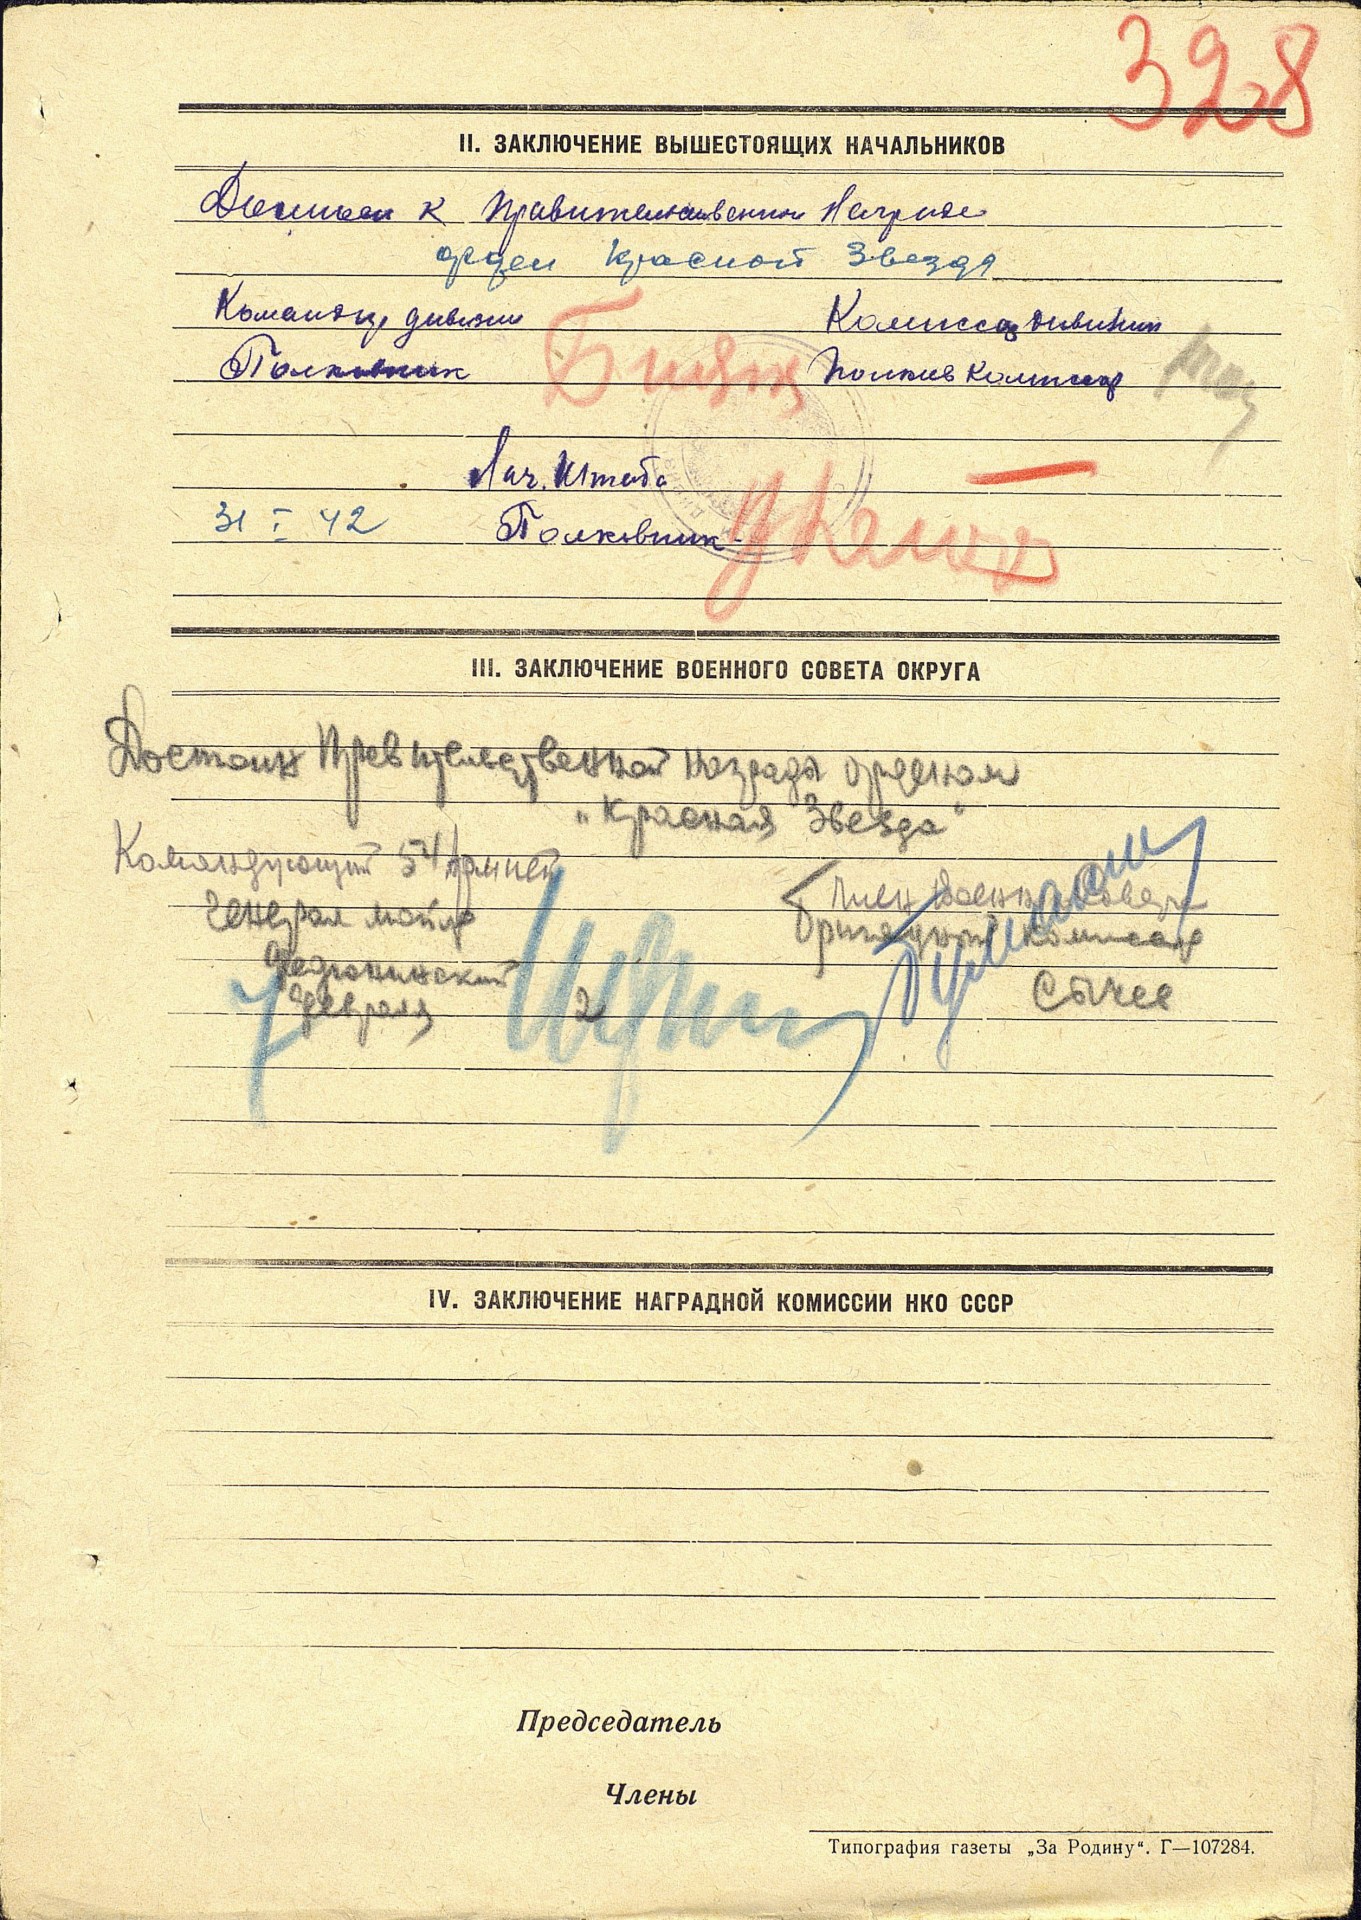 328
II. ЗАКЛЮЧЕНИЕ ВЫШЕСТОЯЩИХ НАЧАЛЬНИКОВ
к правительственной Награде
орден Красной Звезды
Командир дивизии Комиссар дивизии
Полковник Полков Комиссар
Нач. Штаба
31 I 42 Полковник
III. ЗАКЛЮЧЕНИЕ ВОЕННОГО СОВЕТА ОКРУГА
Достоин Правительственной награды орденом
„Красная Звезда“
Командующий 54 Армией Член Военн Совета
Генерал майор Бригадный комиссар
Федюнинский Сычев
7 февраля 2
IV. ЗАКЛЮЧЕНИЕ НАГРАДНОЙ КОМИССИИ НКО СССР
Председатель
Члены
Типография газеты „За Родину“. Г—107284.